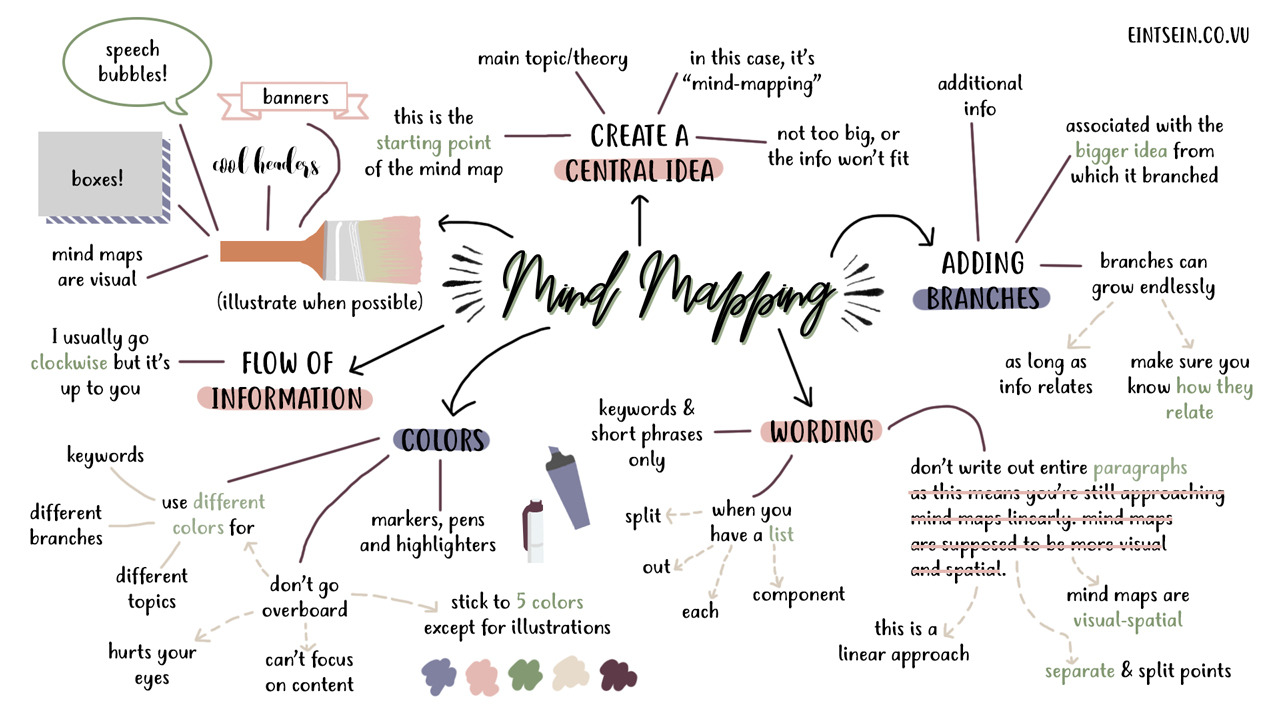 EINTSEIN.CO.VU
speech
bubbles!
banners
cool headers
boxes!
mind maps
are visual
(illustrate when possible)
main topic/theory
in this case, it's
“mind-mapping”
this is the
starting point
of the mind map
CREATE A
CENTRAL IDEA
not too big, or
the info won't fit
additional
info
associated with the
bigger idea from
which it branched
ADDING
BRANCHES
branches can
grow endlessly
as long as
info relates
make sure you
know how they
relate
Mind Mapping
I usually go
clockwise but it's
up to you
FLOW OF
INFORMATION
COLORS
keywords
different
branches
use different
colors for
different
topics
markers, pens
and highlighters
don't go
overboard
hurts your
eyes
can't focus
on content
stick to 5 colors
except for illustrations
keywords &
short phrases
only
WORDING
when you
have a list
split
out
each
component
don't write out entire paragraphs
as this means you're still approaching
mind maps linearly. mind maps
are supposed to be more visual
and spatial.
this is a
linear approach
mind maps are
visual-spatial
separate & split points